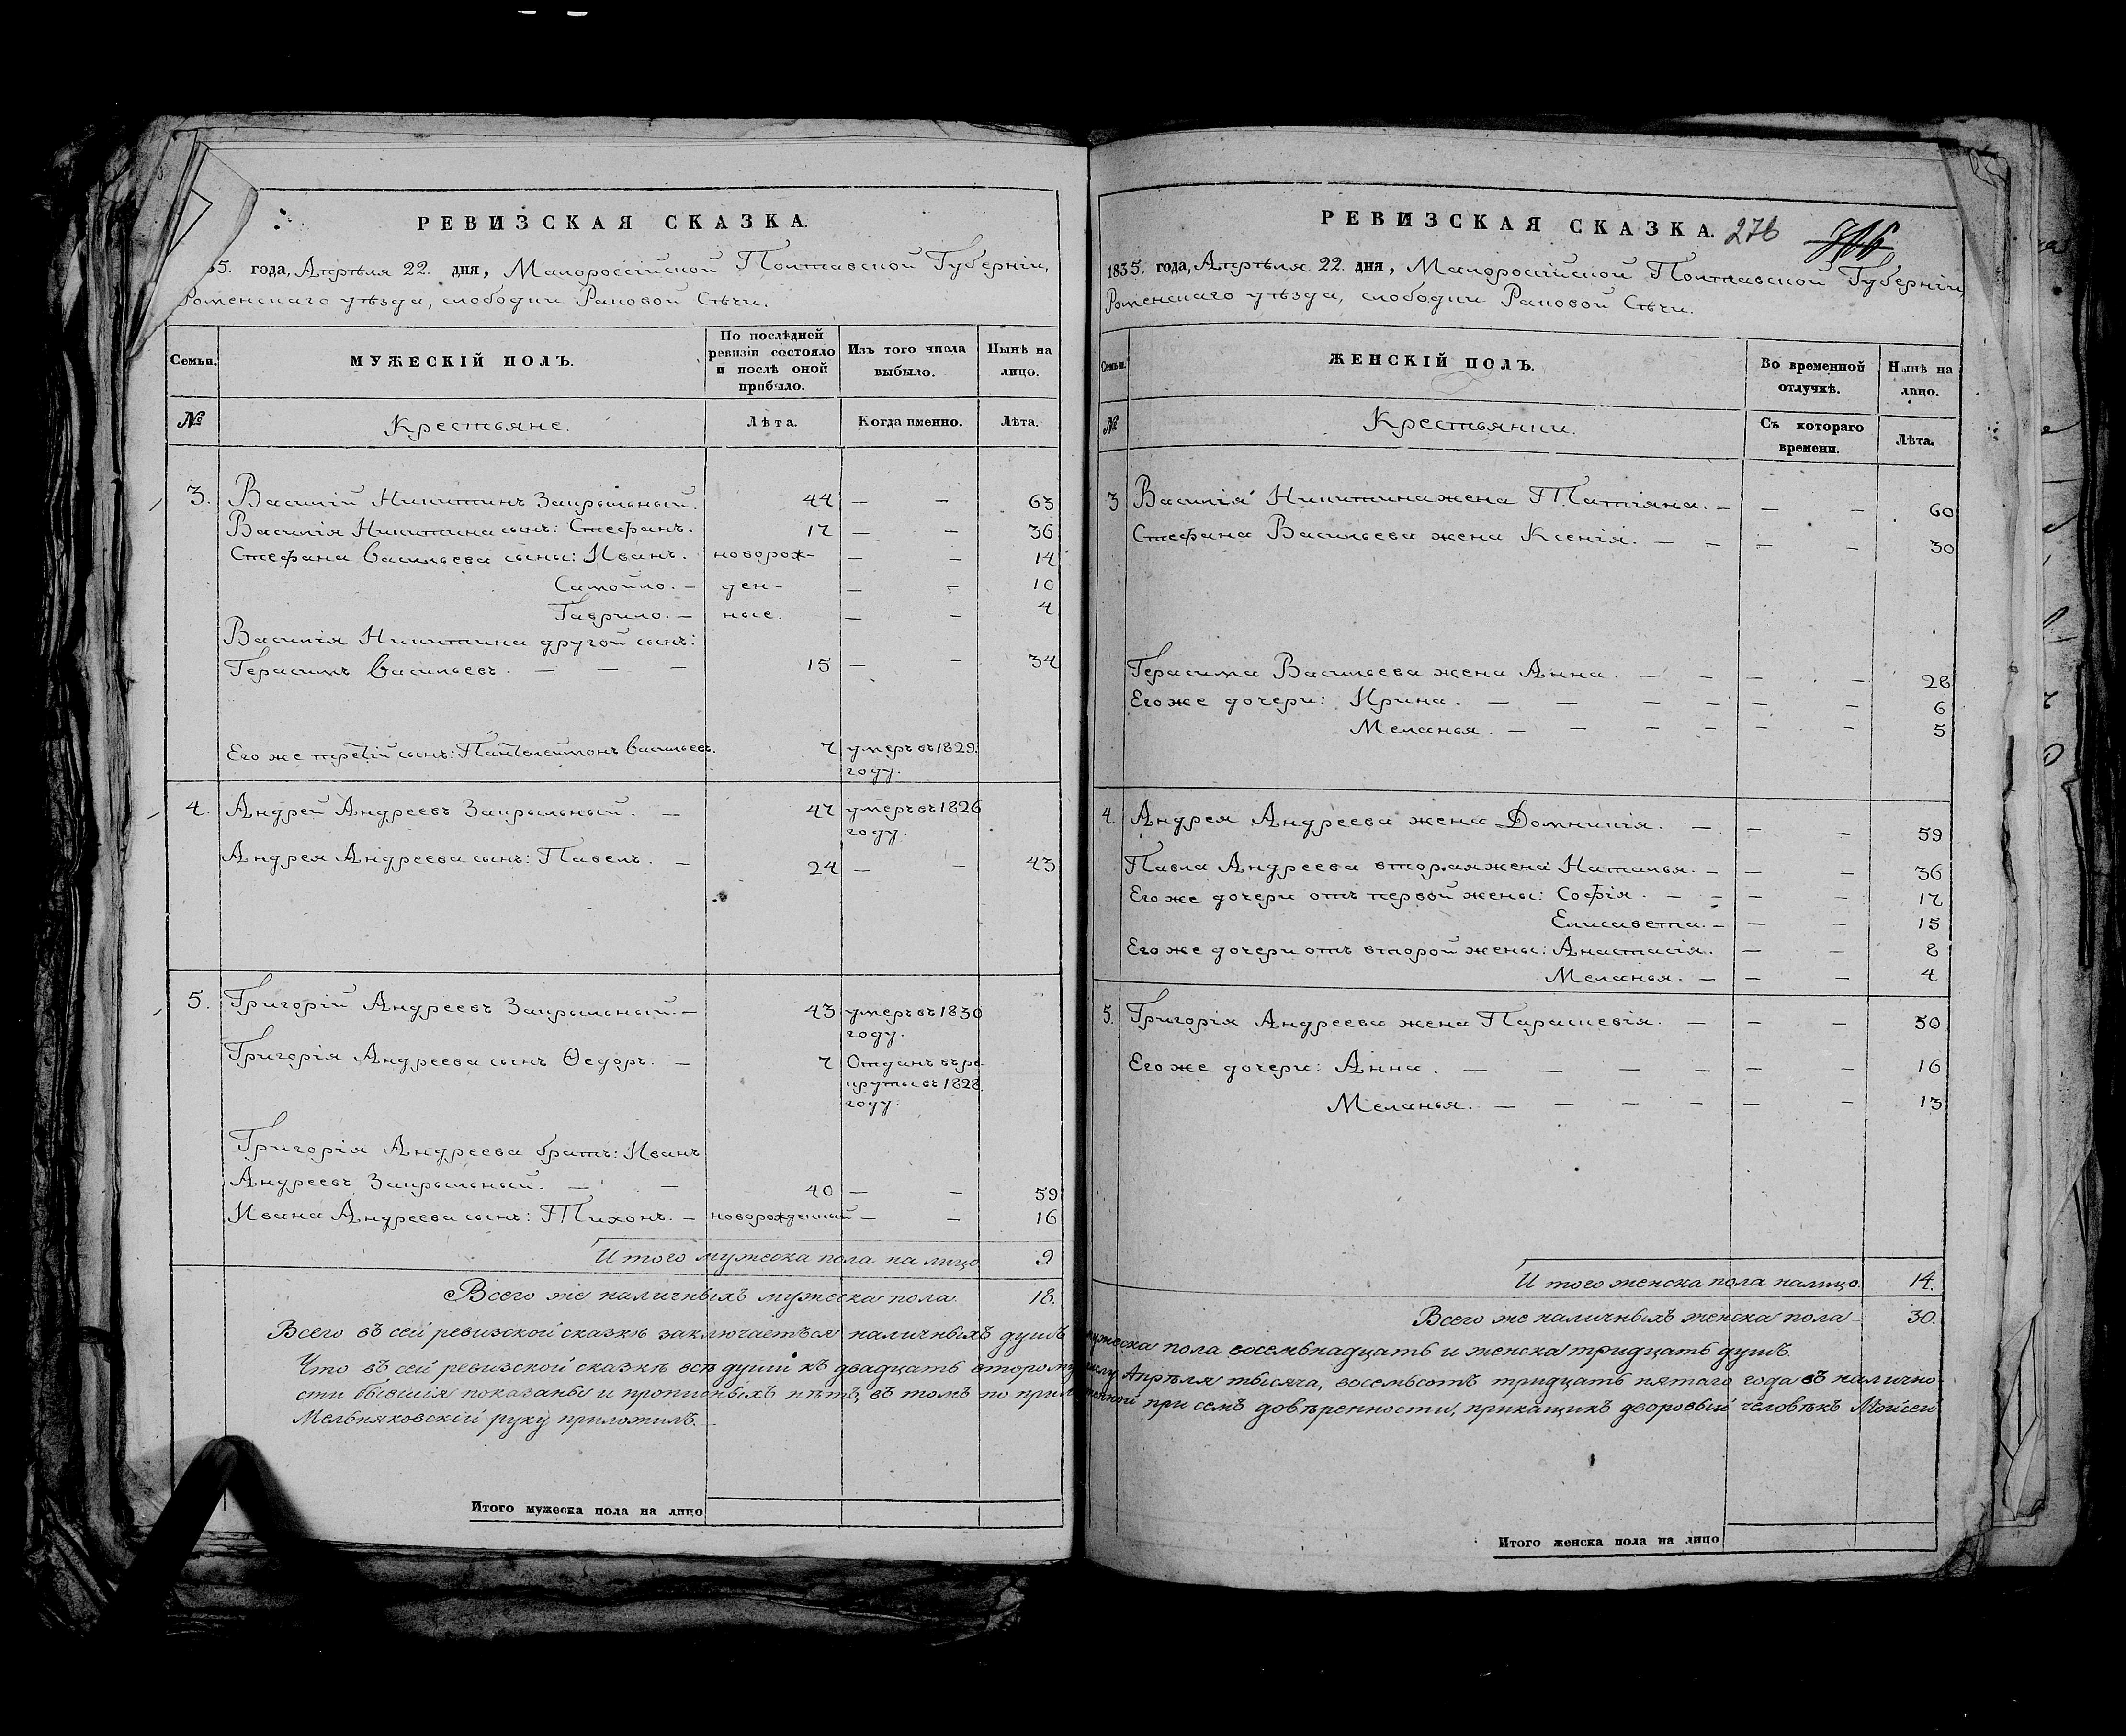 РЕВИЗСКАЯ СКАЗКА.
35. года, Апрѣля 22. дня, Малороссійской Полтавской Губерніи,
Роменскаго уѣзда, слободки Раковой Сѣчи.
Семьи. МУЖЕСКІЙ ПОЛЪ. По послѣдней ревизіи состояло и послѣ оной прибыло. Изъ того числа выбыло. Нынѣ на лицо.
№ Крестьяне. Лѣта. Когда именно. Лѣта.
3. Василій Никитинъ Закрыльный. 44 — — 63
Василія Никитина сынъ: Стефанъ. 17 — — 36
Стефана Васильева сыны: Иванъ. новорож- — — 14
Самойло. — ден- — — 10
Гаврило. — ные. — — 4
Василія Никитина другой сынъ:
Герасимъ Васильевъ. — — — 15 — — 34
Его же третій сынъ: Пантелеймонъ Васильевъ. 7 умеръ въ 1829.
году.
4. Андрей Андреевъ Закрыльный. — 47 умеръ въ 1826
году.
Андрея Андреева сынъ: Павелъ. — 24 — — 43
5. Григорій Андреевъ Закрыльный. — 43 умеръ въ 1830
году.
Григорія Андреева сынъ Ѳедоръ. — 7 Отданъ въ ре-
круты въ 1828.
году.
Григорія Андреева братъ: Иванъ
Андреевъ Закрыльный. — — 40 — — 59
Ивана Андреева сынъ: Тихонъ. — новорожденный — — 16
Итого мужеска пола на лицо 9
Всего же наличныхъ мужеска пола. 18.
РЕВИЗСКАЯ СКАЗКА. 276
1835. года, Апрѣля 22. дня, Малороссійской Полтавской Губерніи,
Роменскаго уѣзда, слободки Раковой Сѣчи.
Семьи. ЖЕНСКІЙ ПОЛЪ. Во временной отлучкѣ. Нынѣ на лицо.
№ Крестьянки. Съ котораго времени. Лѣта.
3 Василія Никитина жена Татіяна. — — — 60
Стефана Васильева жена Ксенія. — — — — 30
Герасима Васильева жена Анна. — — — — 28
Его же дочери: Ирина. — — — — — — 6
Меланья. — — — — — — 5
4. Андрея Андреева жена Домникія. — — — 59
Павла Андреева вторая жена Наталья. — — — 36
Его же дочери отъ первой жены: Софія. — — — — 17
Елисавета. — — — 15
Его же дочери отъ второй жены: Анастасія. — — 8
Меланья. — — — 4
5. Григорія Андреева жена Параскевія. — — — 50
Его же дочери: Анна. — — — — — — 16
Меланья. — — — — — — 13
Итого женска пола на лицо. 14.
Всего же наличныхъ женска пола 30.
Всего въ сей ревизской сказкѣ заключается наличныхъ душъ мужеска пола восемьнадцать и женска тридцать душъ.
Что въ сей ревизской сказкѣ всѣ души къ двадцать второму числу Апрѣля тысяча, восемьсотъ тридцать пятаго года въ налично-
сти бывшія показаны и прописныхъ нѣтъ, въ томъ по приложенной при семъ довѣренности, прикащикъ дворовый человѣкъ Мойсей
Мельняковскій руку приложилъ.
Итого мужеска пола на лицо
Итого женска пола на лицо